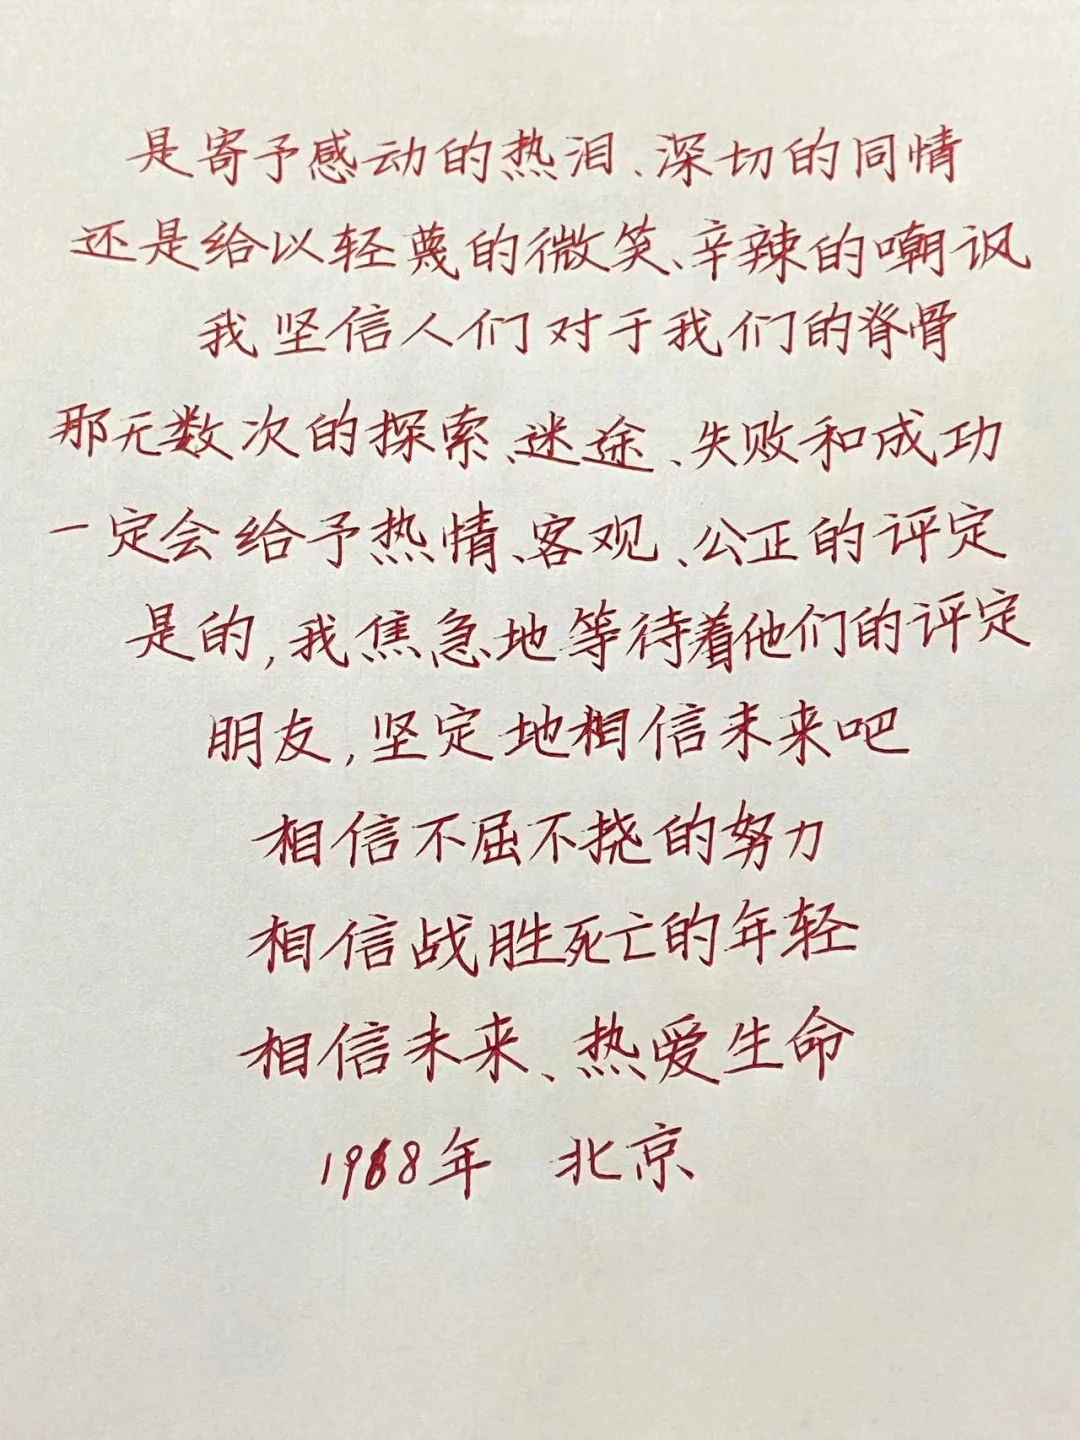 是寄予感动的热泪、深切的同情
还是给以轻蔑的微笑、辛辣的嘲讽
我坚信人们对于我们的脊骨
那无数次的探索、迷途、失败和成功
一定会给予热情、客观、公正的评定
是的,我焦急地等待着他们的评定
朋友,坚定地相信未来吧
相信不屈不挠的努力
相信战胜死亡的年轻
相信未来、热爱生命
1968年 北京